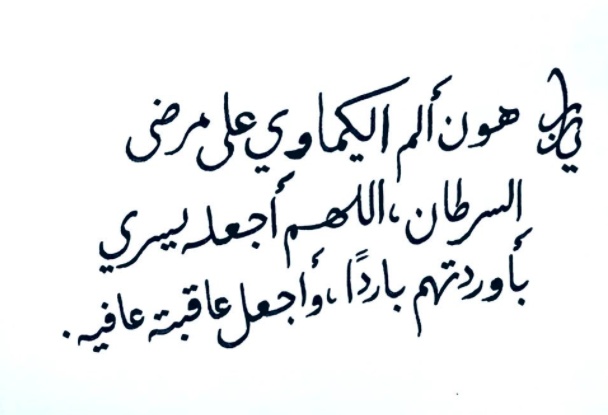 يارب هون ألم الكيماوي على مرضى
السرطان ،اللهم أجعله يسري
بأوردتهم بارداً ،وأجعل عاقبته عافيه .